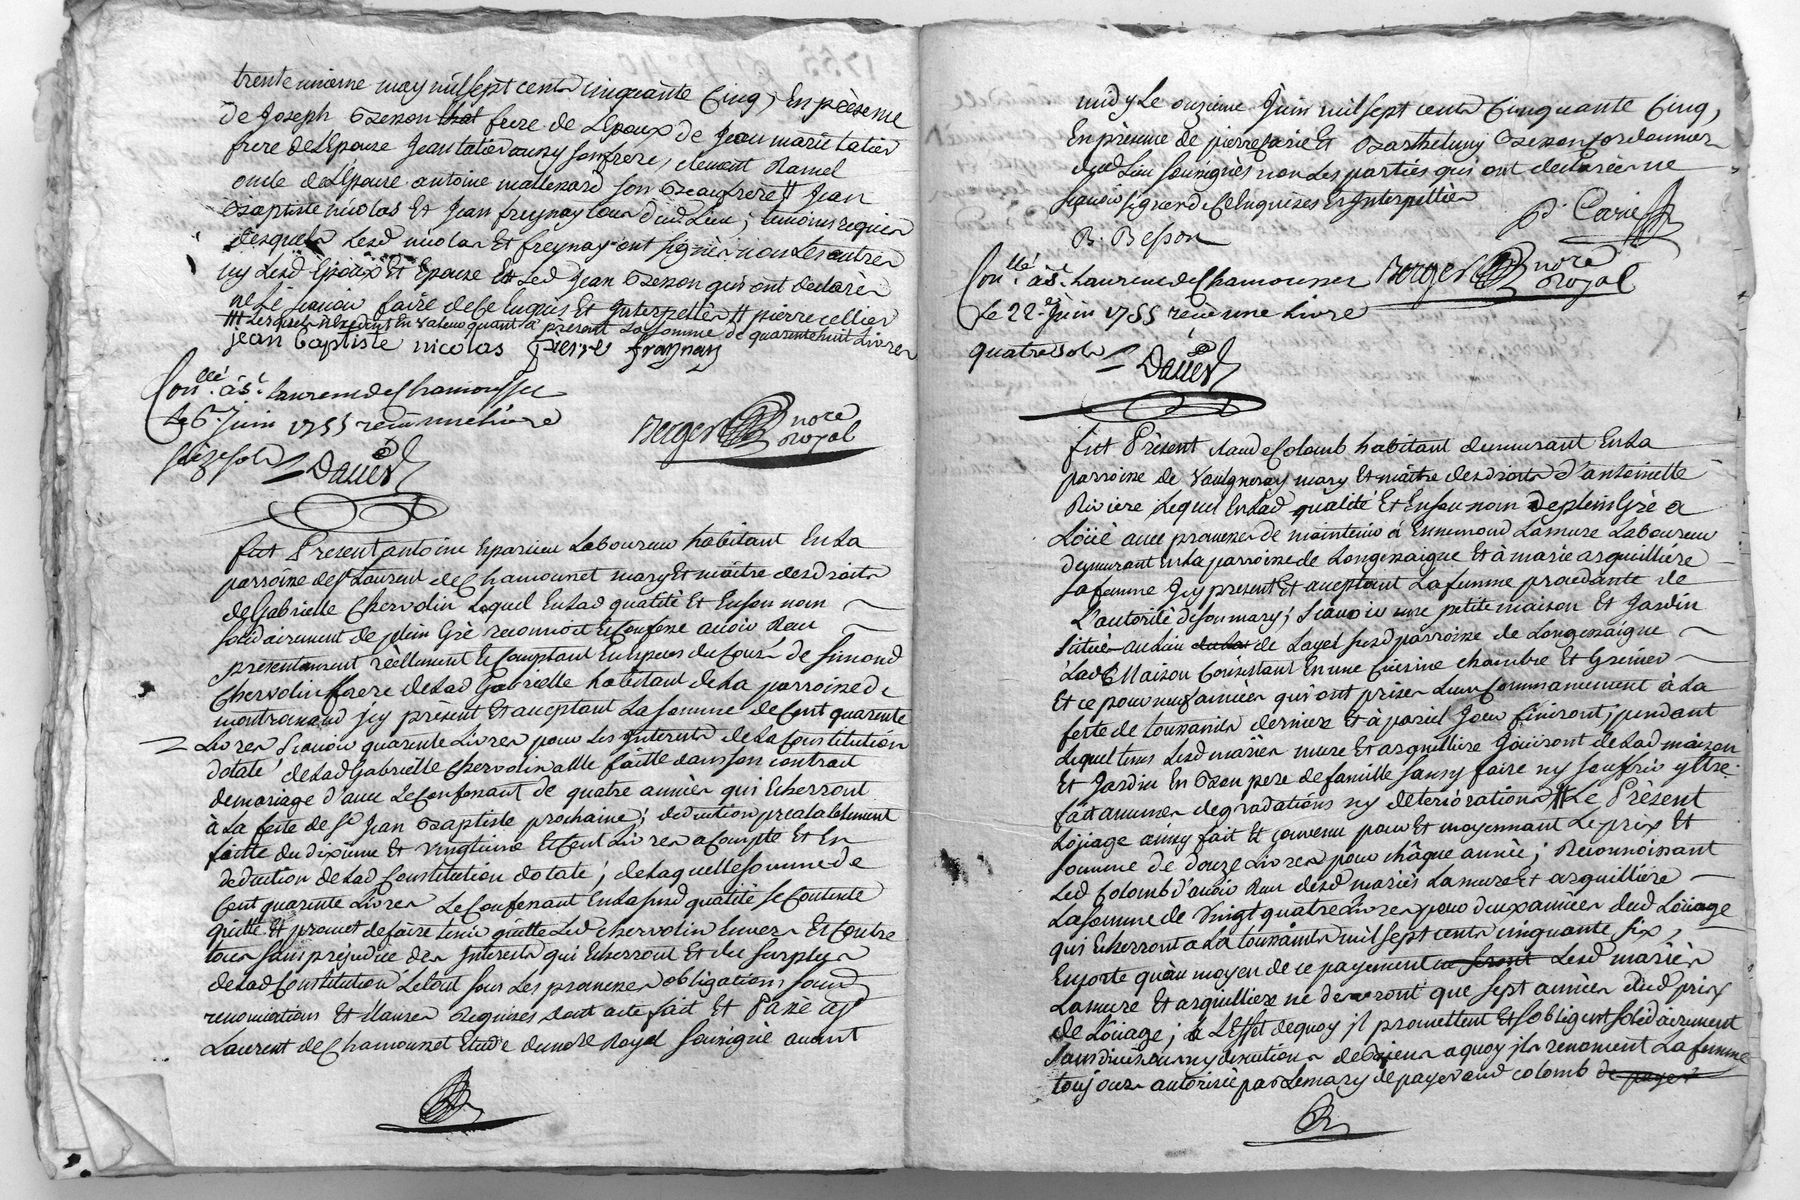 trente unieme may mil sept cent cinquante cinq, En presence
de Joseph Besson frere de L'Epoux de Jean marie tatier
frere de L'Epouse Jean tatier aussy son frere, clement Ramel
oncle de L'epouse antoine mallenard son Beaufrere # Jean
Baptiste nicolas Et Jean freynay tous dud. Lieu; temoins requis
desquels Lesd nicolas Et freynay ont signés non Les autres
ny Lesd Epoux Et Epouse Et Led Jean Besson qui ont declarés
ne Le scavoir faire de Ce Enquis Et Interpellés # pierre cellier
Lesquels Excedent En valeur quant a present La somme de quarente huit Livres
jean baptiste nicolas pierre fraynay
Con.llé à St. Laurens de Chamousset
Le 6e. Juin 1755 recû une livre
seize sols Daues
Berger nore
Royal
fut Present antoine Esparieu Laboureur habitant En La
parroisse de St Laurent de Chamounset mary Et maître des droits
de Gabrielle Chervolin Lequel En Lad qualité Et En son nom
solidairement de plein Gré reconnoit Et Confesse avoir Receu
presentement réellement Et Comptant En Especes du Cours de simond
Chervolin frere de Lad Gabrielle habitant de La parroisse de
montromand icy présent Et acceptant La somme de Cent quarente
Livres scavoir quarente Livres pour Les Interests de La Constitution
dotale de Lad Gabrielle Chervolin a Elle faitte dans son contract
de mariage d'avec Le Confessant de quatre années qui Echerront
à La feste de St Jean Baptiste prochaine; deduction prealablement
faitte du dixieme Et vingtieme Et Cent Livres a Compte Et En
deduction de Lad Constitution dotale; de Laquelle somme de
Cent quarente Livres Le Confessant En La susd qualité se Contente
quitte Et promet de faire tenir quitte Led Chervolin Envers Et Contre
tous sans prejudice des Interests qui Echerront Et du surplus
de Lad Constitution Le tout sous Les promesses obligations soumis
renonciations Et Clauses Requises dont acte fait Et Passé a St
Laurent de Chamounset Etude du nore Royal soussigné avant
midy Le onzieme Juin mil sept cent Cinquante Cinq,
En présence de pierre Carie Et Barthelemy Besson Cordonnier
dud Lieu soussignés non Les parties qui ont declarées ne
scavoir signer de Ce Enquises Et Interpellées
P. Carie
B. Besson
Con.llé à St. Laurens de Chamousset Berger nore
Royal
Le 22e. Juin 1755 recû une Livre
quatre sols Daues
fut Présent claude Colomb habitant demeurant En La
parroisse de Vaugneray mary Et maître des droits d'antoinette
Riviere Lequel En Lad qualité Et En son nom De plein Gré a
Loüé avec promesse de maintenir à Ennemond Lamure Laboureur
demeurant En La parroisse de Longessaigne Et à marie arquilliere
sa femme Icy presents Et acceptant La femme procedante de
L'autorité de son mary; scavoir une petite maison Et Jardin
situés au Lieu de Layet susd parroisse de Longessaigne
Lad Maison Consistant En une Cuisine chambre Et Grenier
Et ce pour neuf années qui ont prises Leur Commancement à La
feste de toussaints derniere Et à pareil Jour finiront; pendant
Lequel tems Lesd mariés mure Et arquilliere Joüiront de Lad maison
Et Jardin En Bon pere de famille sans y faire ny souffrir y Etre
fait aucunes degradations ny deteriorations # Le Présent
Loüage ainsy fait Et convenu pour Et moyennant Le prix Et
somme de douze Livres pour châque année; Reconnoissant
Led Colomb d'avoir Receu desd mariés Lamure Et arquilliere
La somme de Vingt quatre Livres pour deux années dud Loüage
qui Echerront a La toussaints mil sept cent cinquante six,
En sorte qu'au moyen de ce payement ne seront Lesd mariés
Lamure Et arquilliere ne devront que sept années dud prix
de Loüage; à L'Effet de quoy jls promettent Et s'obligent solidairement
sans division ny discution de Biens a quoy jls renoncent La femme
toujours autorisée par Le mary de payer aud colomb de payer